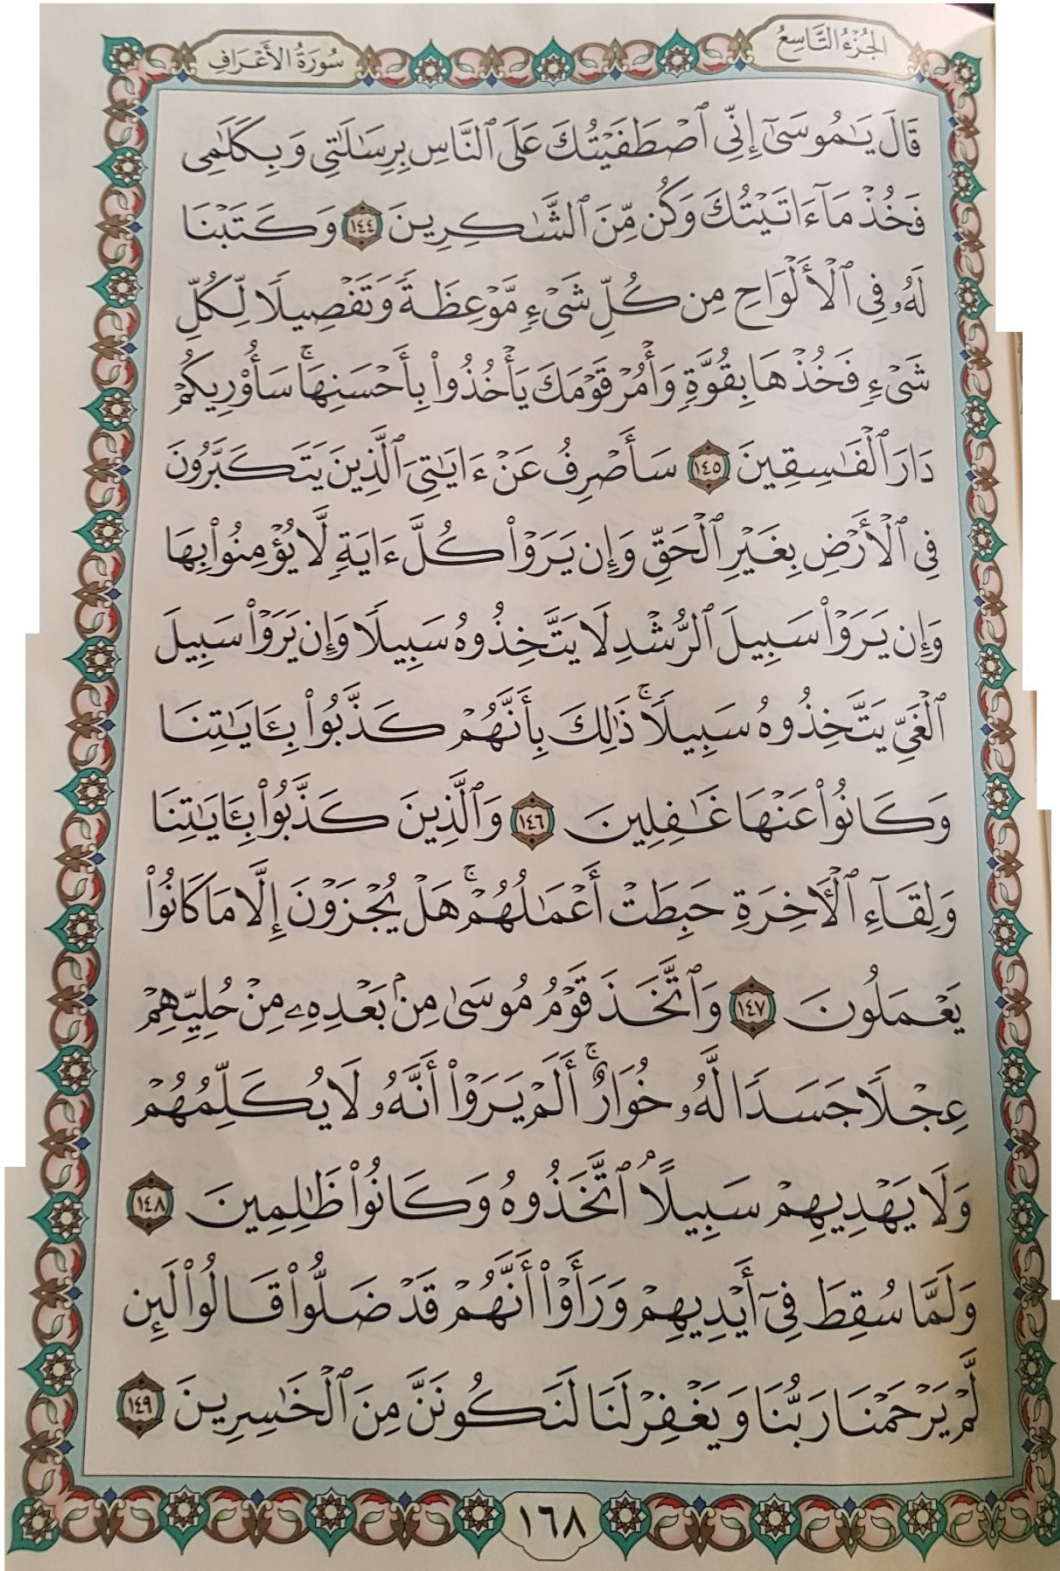 الجُزْءُ التَّاسِعُ
سُورَةُ الأَعْرَافِ
قَالَ يَٰمُوسَىٰٓ إِنِّي ٱصْطَفَيْتُكَ عَلَى ٱلنَّاسِ بِرِسَٰلَٰتِي وَبِكَلَٰمِي
فَخُذْ مَآ ءَاتَيْتُكَ وَكُن مِّنَ ٱلشَّٰكِرِينَ ١٤٤ وَكَتَبْنَا
لَهُۥ فِي ٱلْأَلْوَاحِ مِن كُلِّ شَيْءٍ مَّوْعِظَةً وَتَفْصِيلًا لِّكُلِّ
شَيْءٍ فَخُذْهَا بِقُوَّةٍ وَأْمُرْ قَوْمَكَ يَأْخُذُوا۟ بِأَحْسَنِهَاۚ سَأُو۟رِيكُمْ
دَارَ ٱلْفَٰسِقِينَ ١٤٥ سَأَصْرِفُ عَنْ ءَايَٰتِيَ ٱلَّذِينَ يَتَكَبَّرُونَ
فِي ٱلْأَرْضِ بِغَيْرِ ٱلْحَقِّ وَإِن يَرَوْا۟ كُلَّ ءَايَةٍ لَّا يُؤْمِنُوا۟ بِهَا
وَإِن يَرَوْا۟ سَبِيلَ ٱلرُّشْدِ لَا يَتَّخِذُوهُ سَبِيلًا وَإِن يَرَوْا۟ سَبِيلَ
ٱلْغَيِّ يَتَّخِذُوهُ سَبِيلًاۚ ذَٰلِكَ بِأَنَّهُمْ كَذَّبُوا۟ بِـَٔايَٰتِنَا
وَكَانُوا۟ عَنْهَا غَٰفِلِينَ ١٤٦ وَٱلَّذِينَ كَذَّبُوا۟ بِـَٔايَٰتِنَا
وَلِقَآءِ ٱلْءَاخِرَةِ حَبِطَتْ أَعْمَٰلُهُمْۚ هَلْ يُجْزَوْنَ إِلَّا مَا كَانُوا۟
يَعْمَلُونَ ١٤٧ وَٱتَّخَذَ قَوْمُ مُوسَىٰ مِنۢ بَعْدِهِۦ مِنْ حُلِيِّهِمْ
عِجْلًا جَسَدًا لَّهُۥ خُوَارٌۚ أَلَمْ يَرَوْا۟ أَنَّهُۥ لَا يُكَلِّمُهُمْ
وَلَا يَهْدِيهِمْ سَبِيلًاۘ ٱتَّخَذُوهُ وَكَانُوا۟ ظَٰلِمِينَ ١٤٨
وَلَمَّا سُقِطَ فِيٓ أَيْدِيهِمْ وَرَأَوْا۟ أَنَّهُمْ قَدْ ضَلُّوا۟ قَالُوا۟ لَئِن
لَّمْ يَرْحَمْنَا رَبُّنَا وَيَغْفِرْ لَنَا لَنَكُونَنَّ مِنَ ٱلْخَٰسِرِينَ ١٤٩
١٦٨